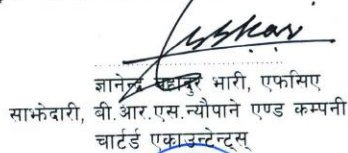 ज्ञानेन्द्र बहादुर भारी, एफसिए
साझेदारी, बी.आर.एस.न्यौपाने एण्ड कम्पनी
चार्टर्ड एकाउन्टेन्ट्स्